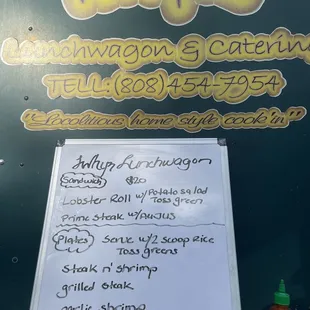 Lunchwagon & Catering
TELL:(808)454-7954
"Localitious home style cook'in"
Lunchwagon
Sandwich $20
Lobster Roll w/Potato salad
Toss green
Prime steak w/AuJUS
Plates Serve w/2 scoop Rice
Toss greens
Steak n' shrimp
grilled steak
garlic shrimp